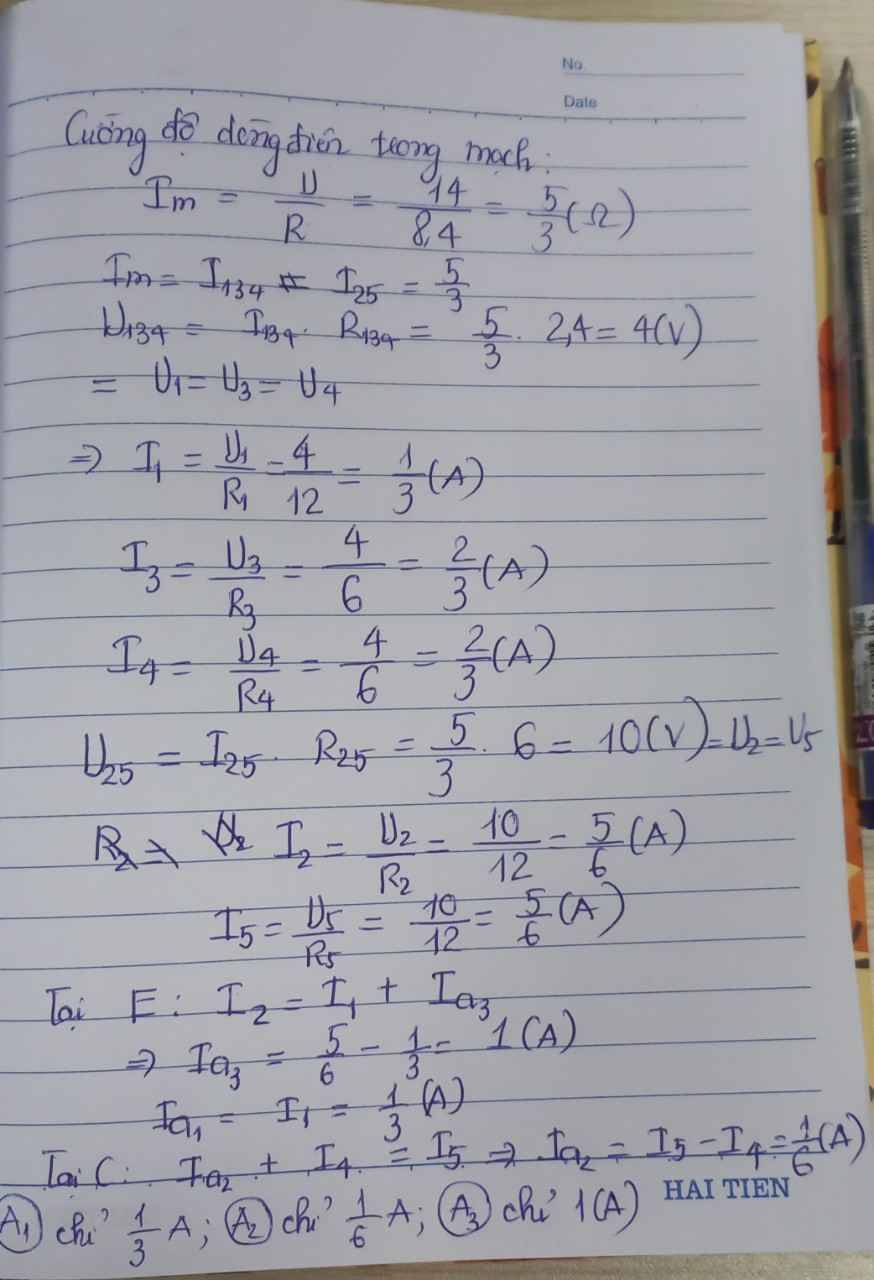 No
Date
Cường độ dòng điện trong mạch:
Im = U/R = 14/8,4 = 5/3 (Ω)
Im = I134 = I25 = 5/3
U134 = I134 . R134 = 5/3 . 2,4 = 4(V)
= U1 = U3 = U4
⇒ I1 = U1/R1 = 4/12 = 1/3 (A)
I3 = U3/R3 = 4/6 = 2/3 (A)
I4 = U4/R4 = 4/6 = 2/3 (A)
U25 = I25 . R25 = 5/3 . 6 = 10(V) = U2 = U5
I2 = U2/R2 = 10/12 = 5/6 (A)
I5 = U5/R5 = 10/12 = 5/6 (A)
Tại E: I2 = I1 + Ia3
⇒ Ia3 = 5/6 - 1/3 = 1(A)
Ia1 = I1 = 1/3 (A)
Tại C: Ia2 + I4 = I5 ⇒ Ia2 = I5 - I4 = 1/6 (A)
HAI TIEN
A1 chỉ 1/3 A; A2 chỉ 1/6 A; A3 chỉ 1(A)